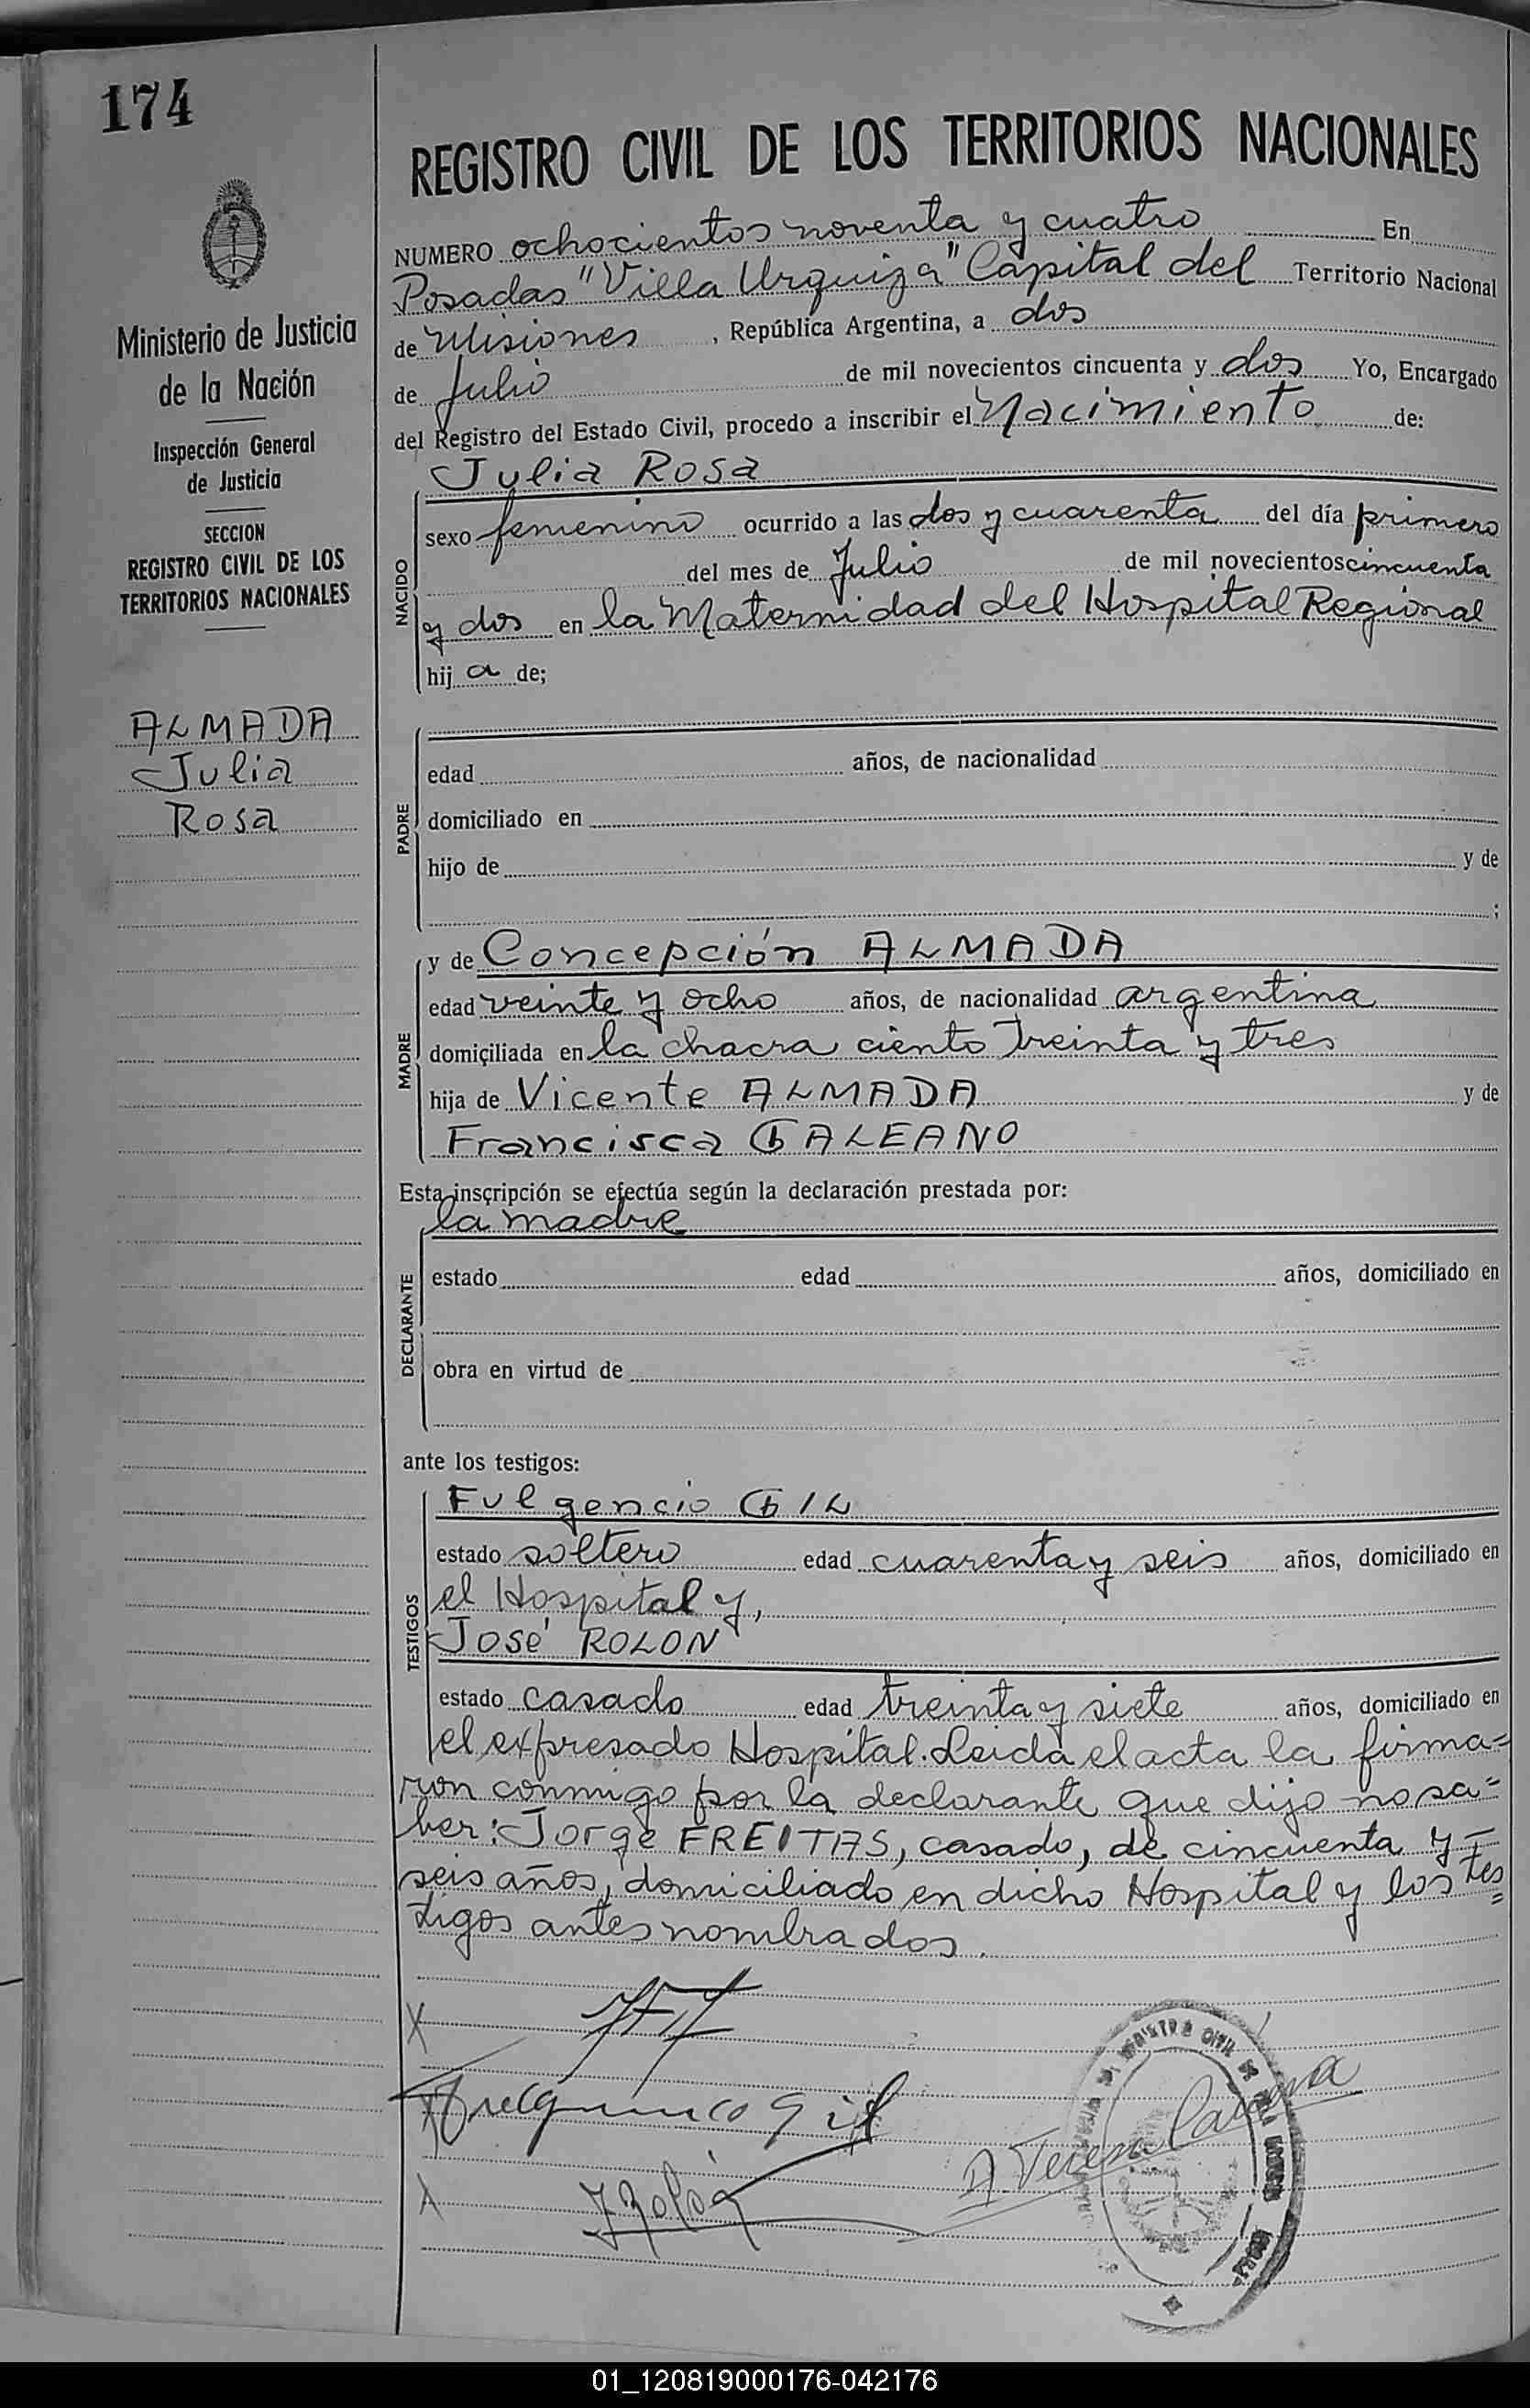 174
REGISTRO CIVIL DE LOS TERRITORIOS NACIONALES
Ministerio de Justicia
de la Nación
Inspección General
de Justicia
SECCION
REGISTRO CIVIL DE LOS
TERRITORIOS NACIONALES
ALMADA
Julia
Rosa
NUMERO ochocientos noventa y cuatro En
Posadas "Villa Urquiza" Capital del Territorio Nacional
de Misiones, República Argentina, a dos
de Julio de mil novecientos cincuenta y dos Yo, Encargado
del Registro del Estado Civil, procedo a inscribir el Nacimiento de:
Julia Rosa
NACIDO
sexo femenino ocurrido a las dos y cuarenta del día primero
del mes de Julio de mil novecientos cincuenta
y dos en la Maternidad del Hospital Regional
hij a de;
PADRE
edad años, de nacionalidad
domiciliado en
hijo de y de
;
MADRE
y de Concepción ALMADA
edad veinte y ocho años, de nacionalidad argentina
domiciliada en la chacra ciento treinta y tres
hija de Vicente ALMADA y de
Francisca GALEANO
Esta inscripción se efectúa según la declaración prestada por:
la madre
DECLARANTE
estado edad años, domiciliado en
obra en virtud de
ante los testigos:
TESTIGOS
Fulgencio GIL
estado soltero edad cuarenta y seis años, domiciliado en
el Hospital y,
José ROLON
estado casado edad treinta y siete años, domiciliado en
el expresado Hospital. Leida el acta la firma=
ron conmigo por la declarante que dijo no sa=
ber: Jorge FREITAS, casado, de cincuenta y
seis años, domiciliado en dicho Hospital y los tes
=
tigos antes nombrados.
X
Fulgencio Gil
J Rolón
01_120819000176-042176